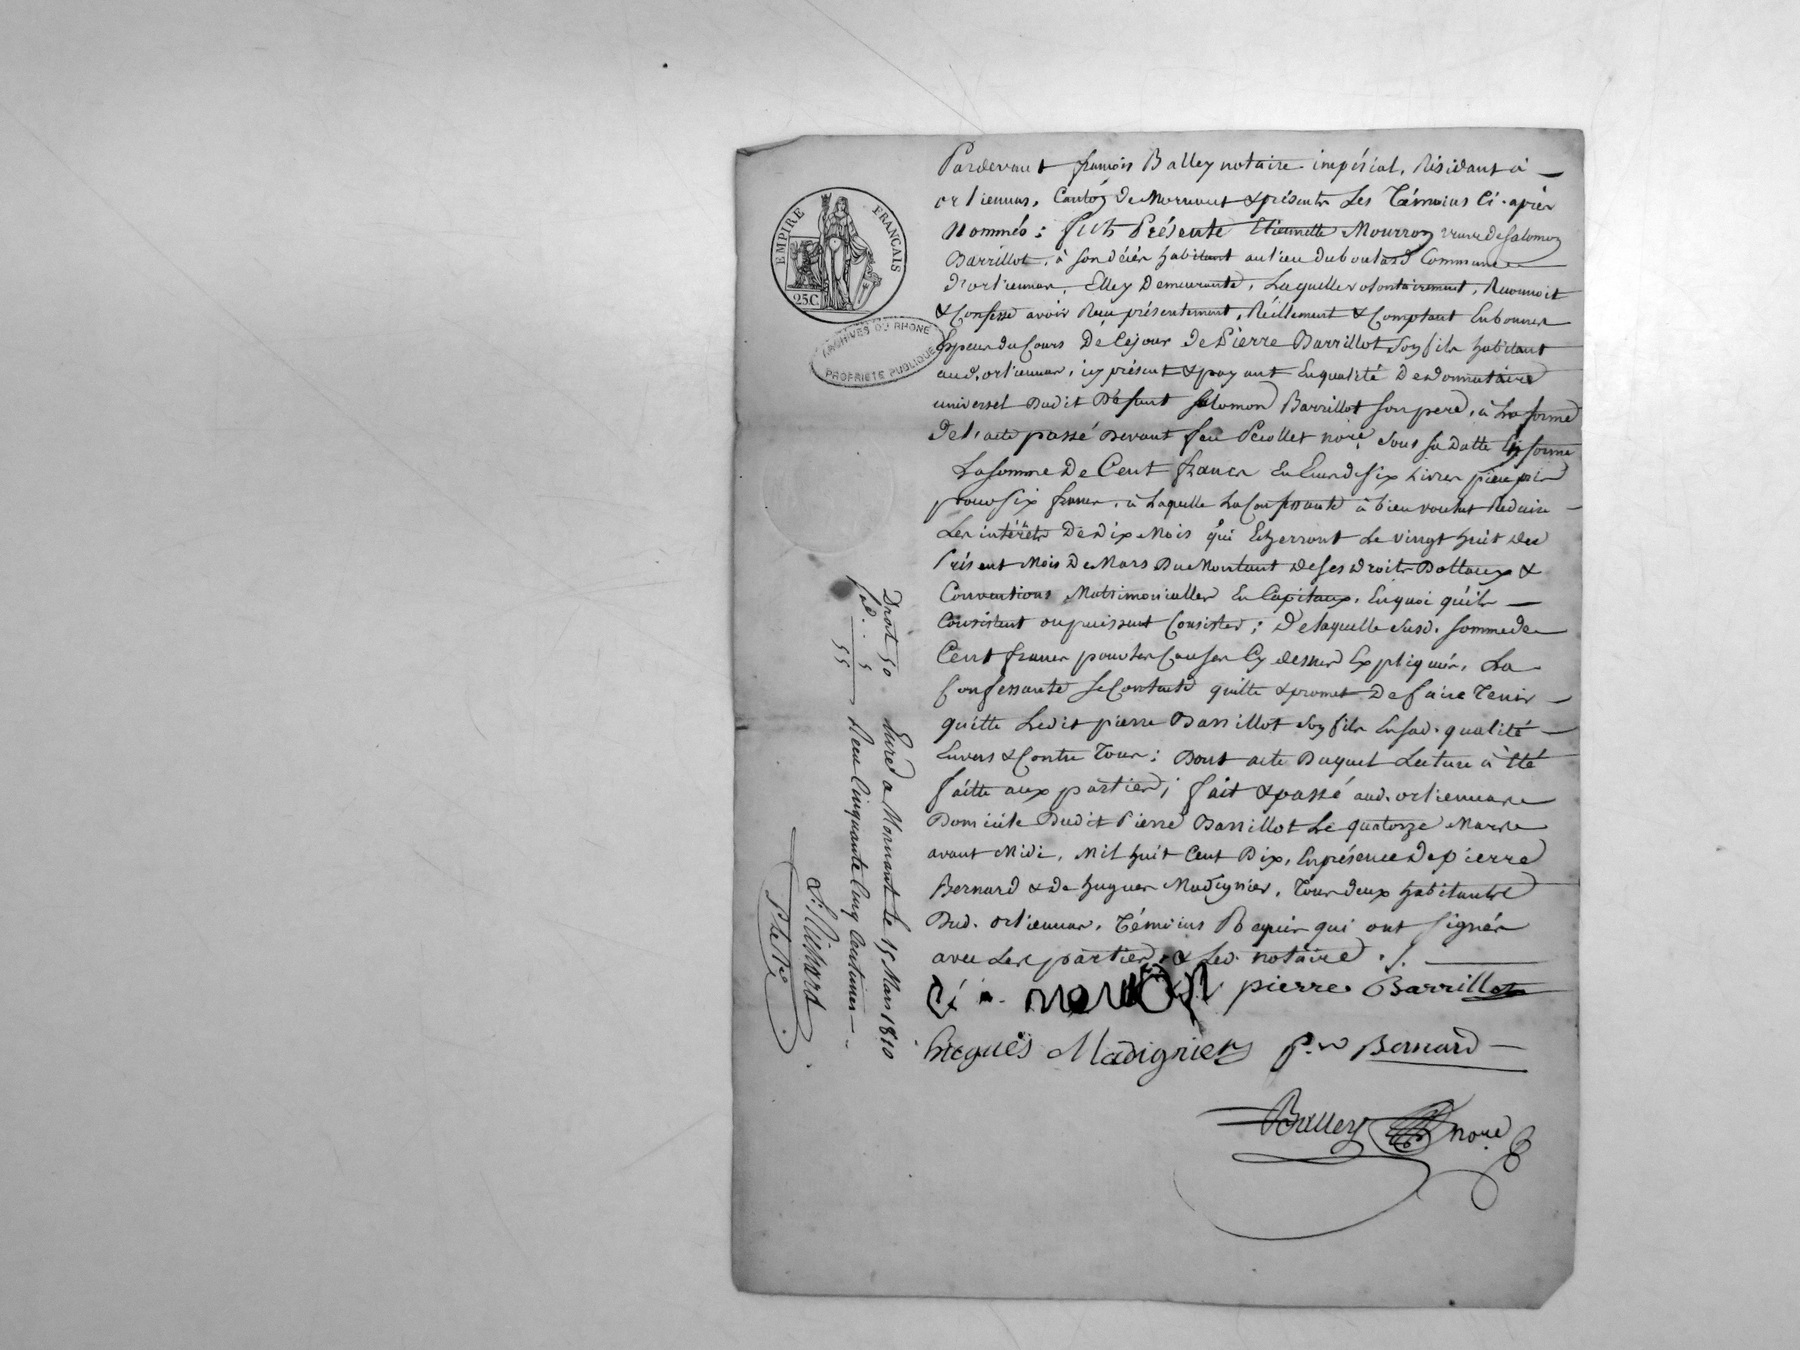 Pardevant françois Balley notaire impérial, Résidant à
orliennas, Canton de Mornant & présents Les Témoins Ci-après
Nommés : fut Présente Etiennette Mourron veuve de Salomon
Barrillot, à son décès habitant au lieu du boulard Commune
d'orliennas, Elle y Demeurante, Laquelle volontairement, Reconnoit
& Confesse avoir Reçu présentement, Réellement & Comptant En bonnes
Espèces du Cours De Cejour de Pierre Barrillot son fils habitant
aud. orliennas, icy présent & payant En qualité De donnataire
universel Dudit Défunt Salomon Barrillot son père, à La forme
de l'acte passé Devant feu Pecollet noire sous sa Datte En forme
La somme De Cent francs En Ecus de six Livres pièce pris
pour six francs, à Laquelle La Confessante à bien voulut Réduire
Les intérêts De dix Mois qui Echerront Le vingt huit du
Présent Mois De Mars Du Montant de ses droits Dottaux &
Conventions Matrimonialles En Capitaux, En quoi qu'ils
Consistent ou puissent Consister ; De laquelle susd. somme de
Cent francs pour les Causes Cy dessus Expliqués, La
Confessante se Contente quitte & promet De faire Tenir
quitte Ledit pierre Barrillot son fils En sad. qualité
Envers & Contre Tous ; Dont acte Duquel Lecture à Eté
faitte aux parties ; fait & passé aud. orliennas
Domicile Dudit Pierre Barrillot Le quatorze Mars
avant Midi, Mil huit Cent Dix, En présence De pierre
Bernard & de hugues Madignier, Tous deux habitants
Dud. orliennas, Témoins Requis qui ont signés
avec Les parties & Led. notaire ./.
pierre Barrillot
hugues Madignier P.re Bernard
Balley nore
EMPIRE FRANÇAIS
25C
ARCHIVES DU RHONE
PROPRIETE PUBLIQUE
Droit 50
5
55
Enreg. a Mornant le 15 Mars 1810
Reçu Cinquante Cinq Centimes